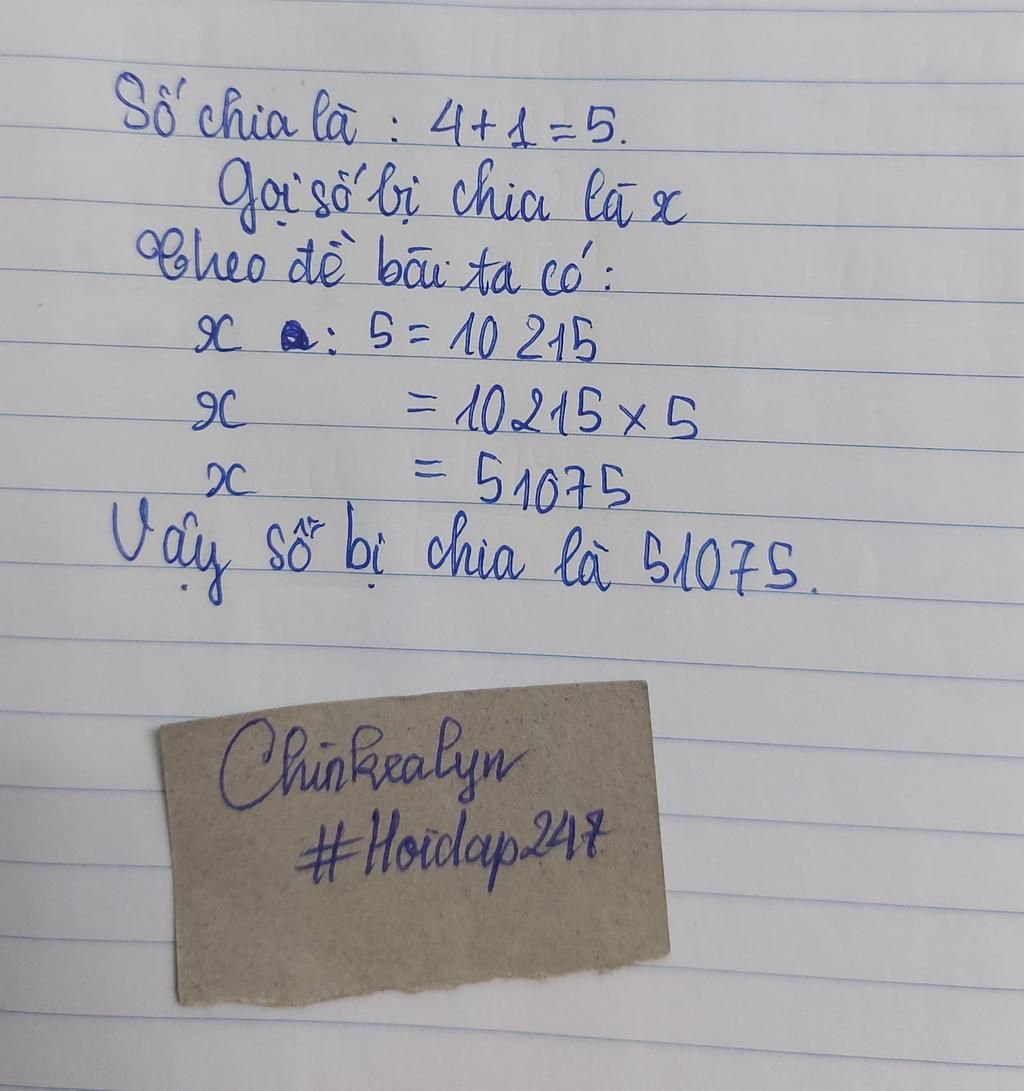 Số chia là : 4 + 1 = 5.
Gọi số bị chia là x
Theo đề bài ta có :
x : 5 = 10 215
x = 10215 × 5
x = 51075
Vậy số bị chia là 51075.
Chinkealyn
#Hoidap247